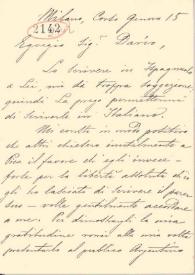 Milano, Corso Genova 15
2142
Egregio Sig. Darío,
Lo scrivere in Spagnuolo
a Lei, mi dà troppa soggezione,
quindi La prego permettermi
di scriverle in Italiano.
Mi consta in modo positivo
che altri chiesero inutilmente a
Lei il favore che egli invece
forse per la libertà assoluta di cui
gli ha lasciato di scrivere il
volle gentilmente accordare
a me. Per dimostrargli la mia
gratitudine vorrei alla mia volta
presentarlo al pubblico Argentino